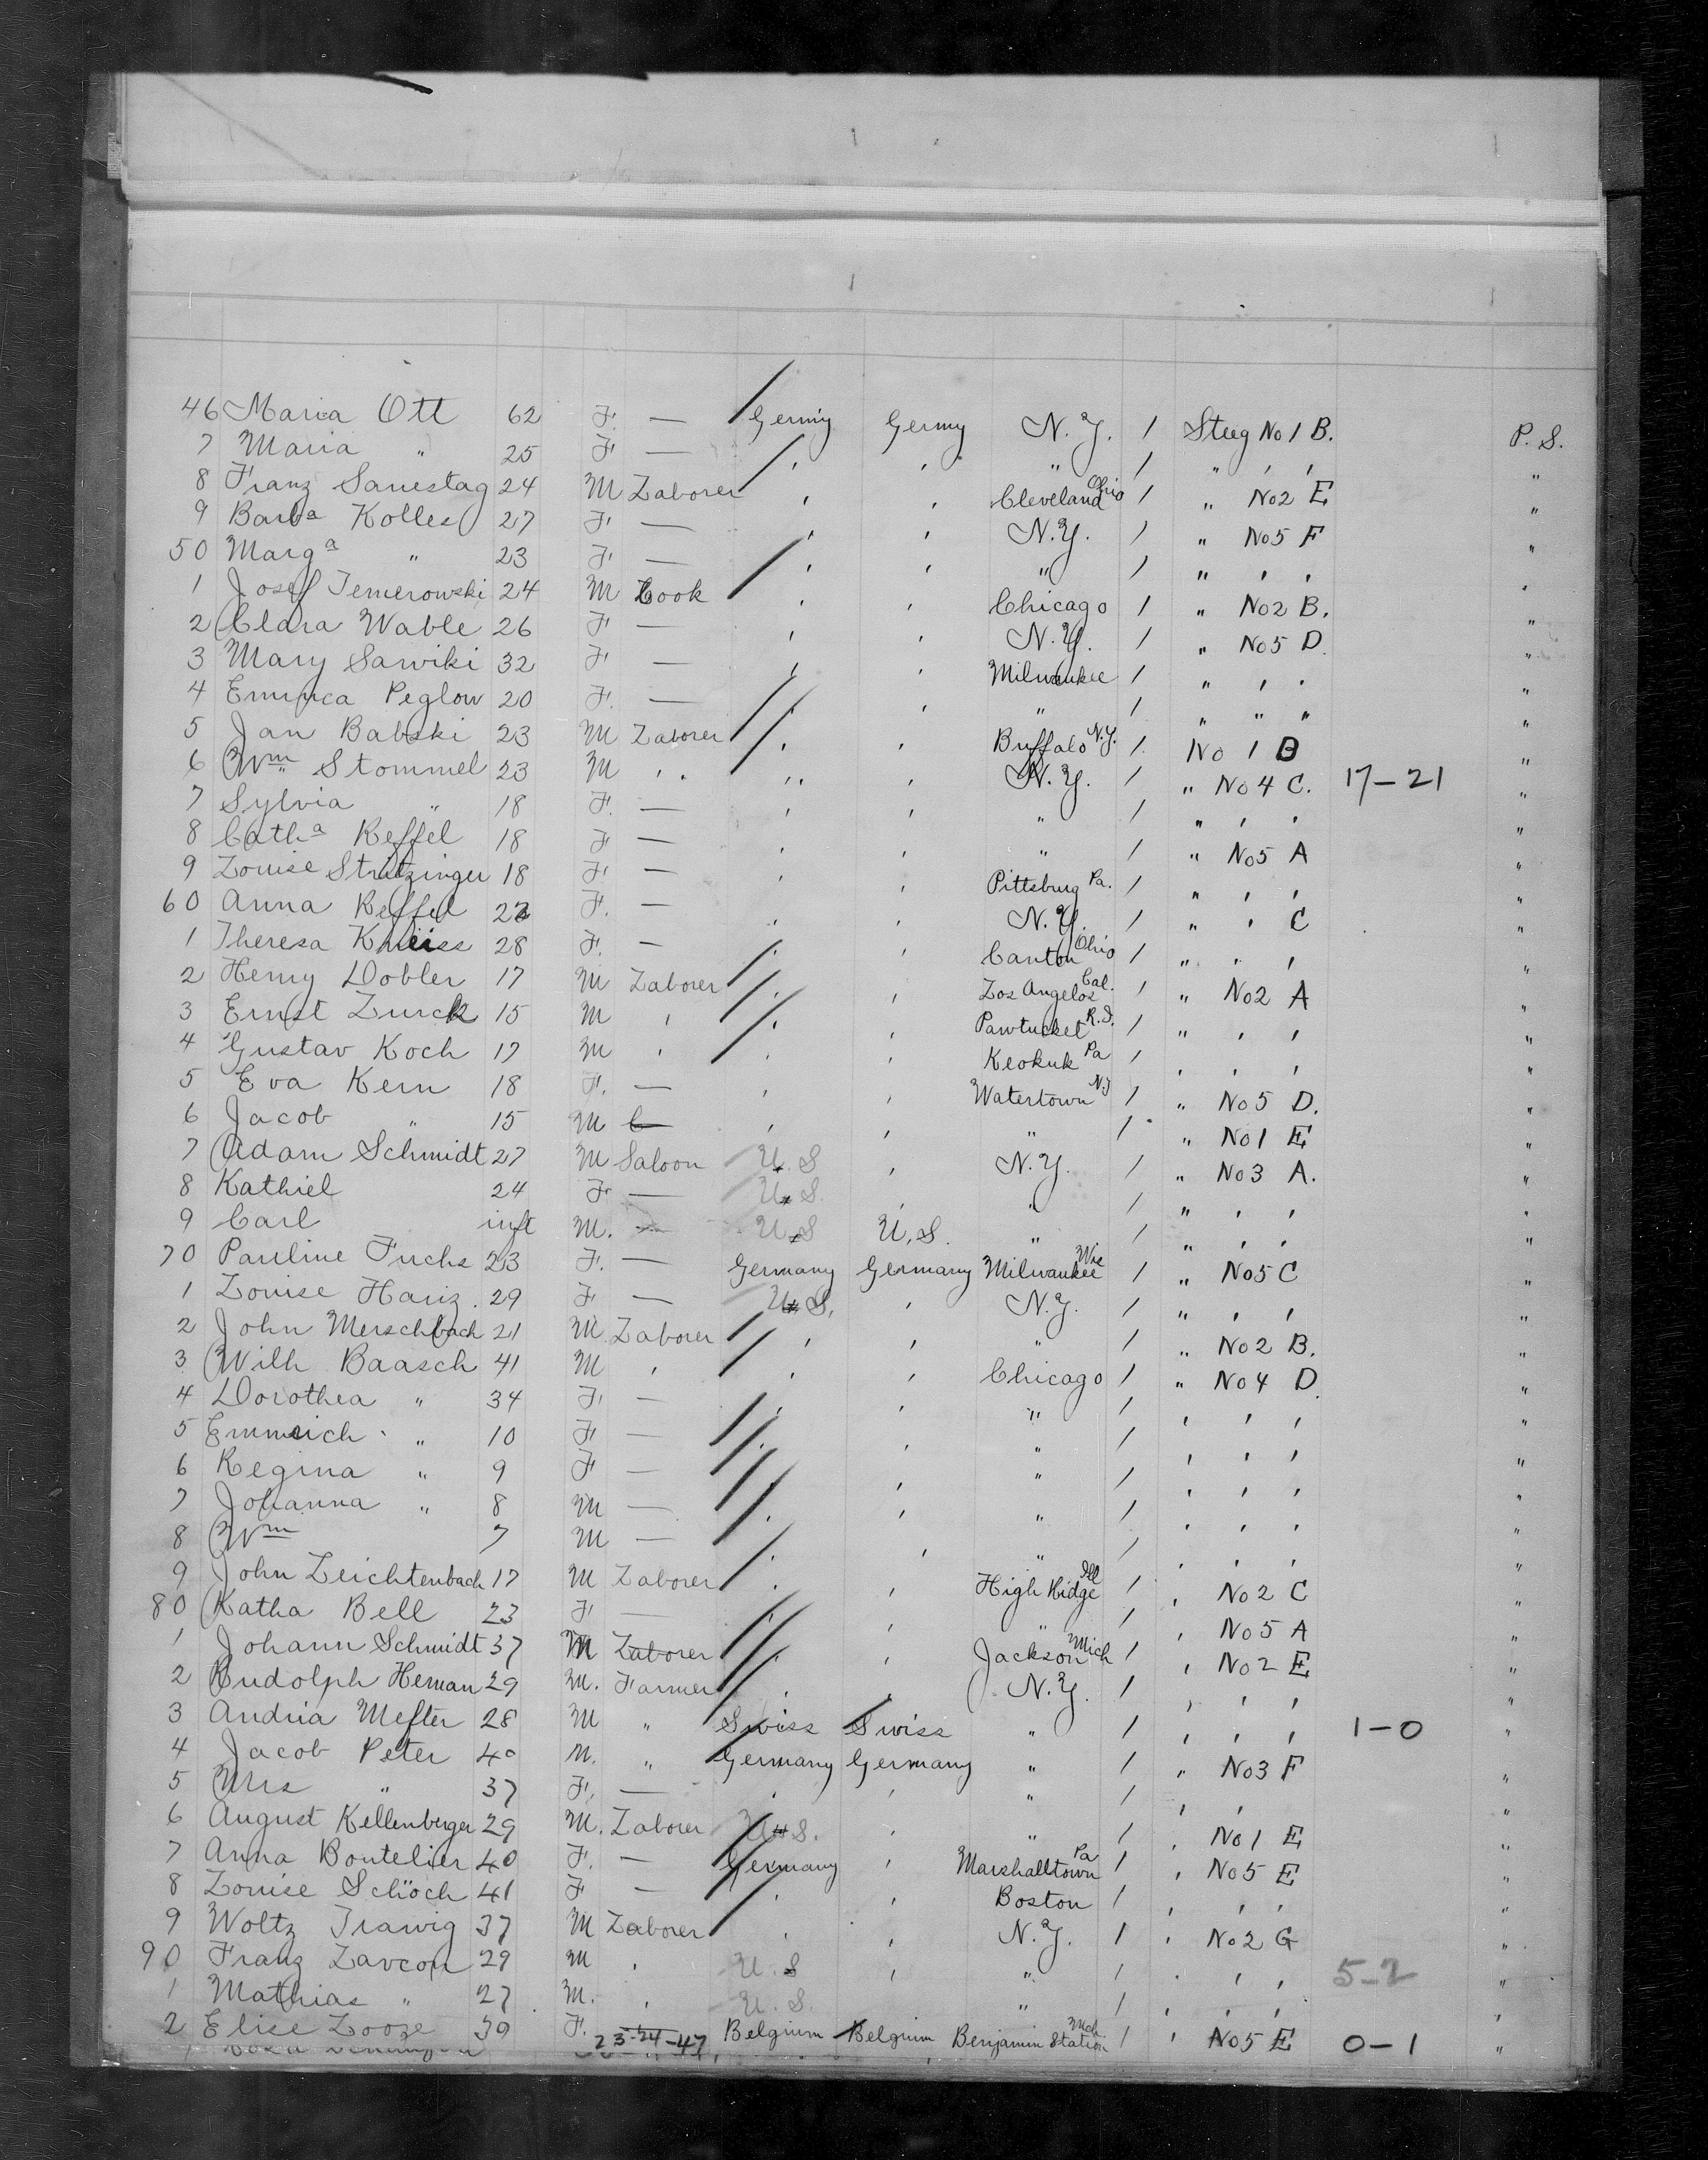 46 Maria Ott 62 F. — Germ'y Germ'y N.Y. / Steeg No 1 B. P. S.
7 Maria " 25 F — ' ' " / " ' ' "
8 Franz Sanestag 24 M Laborer ' ' Cleveland Ohio / " No2 E "
9 Barba Kolles 27 F — ' ' N.Y. / " No5 F "
50 Marga " 23 F — ' ' " / " ' ' "
1 Josef Temerowski 24 M Cook ' ' Chicago / " No2 B. "
2 Clara Wable 26 F — ' ' N.Y. / " No5 D. "
3 Mary Sawiki 32 F — ' ' Milwaukee / " ' ' "
4 Emmca Peglow 20 F. — ' ' " / " " " "
5 Jan Babski 23 M Laborer ' ' Buffalo N.Y. / No 1 B "
6 Wm Stommel 23 M " " ' N.Y. / " No 4 C. 17-21 "
7 Sylvia " 18 F. — ' ' " / " ' ' "
8 Catha Keffel 18 F — ' ' " / " No5 A "
9 Louise Stritzinger 18 F — ' ' Pittsburg Pa. / " ' ' "
60 Anna Keffel 22 F. — ' ' N.Y. / " ' C "
1 Theresa Kneiss 28 F. — ' ' Canton Ohio / " ' ' "
2 Henry Dobler 17 M Laborer ' ' Los Angelos Cal. / " No2 A "
3 Ernst Zurck 15 M ' ' ' Pawtucket R.I. / " ' ' "
4 Gustav Koch 17 M ' ' ' Keokuk Pa / ' ' ' "
5 Eva Kern 18 F. — ' ' Watertown N.Y / " No5 D. "
6 Jacob " 15 M — ' ' " / " No1 E "
7 Adam Schmidt 27 M Saloon U.S ' N.Y. / " No3 A. "
8 Kathiel 24 F — U.S. ' " / " ' ' "
9 Carl inft M. — U.S U.S. " / " ' ' "
70 Pauline Fuchs 23 F. — Germany Germany Milwaukee Wis / " No5 C "
1 Louise Hariz. 29 F — U.S. ' N.Y. / " ' ' "
2 John Merschbach 21 M. Laborer ' ' " / " No2 B. "
3 Wilh Baasch 41 M ' ' ' Chicago / " No4 D. "
4 Dorothea " 34 F — ' ' " / ' ' ' "
5 Emmerich " 10 F — ' ' " / ' ' ' "
6 Regina " 9 F — ' ' " / ' ' ' "
7 Johanna " 8 M — ' ' " / ' ' ' "
8 Wm 7 M — ' ' " / ' ' ' "
9 John Leichtenbach 17 M Laborer ' ' High Ridge Ill / ' No2 C "
80 Katha Bell 23 F — ' ' " / ' No5 A "
1 Johann Schmidt 37 M Laborer ' ' Jackson Mich / ' No2 E "
2 Rudolph Heman 29 M. Farmer ' ' N.Y. / ' ' ' "
3 Andria Mefter 28 M " Swiss Swiss " / ' ' ' 1-0 "
4 Jacob Peter 40 M. " Germany Germany " / " No3 F "
5 Mrs " 37 F. — ' ' " / ' ' "
6 August Kellenberger 29 M. Laborer U.S. ' " / ' No1 E "
7 Anna Boutelier 40 F. — Germany ' Marshalltown Pa / ' No5 E "
8 Louise Schöch 41 F — ' ' Boston / ' ' ' "
9 Woltz Trawig 37 M Laborer ' ' N.Y. / ' No2 G "
90 Franz Lavcon 29 M ' U.S ' " / ' ' ' 5-2 "
1 Mathias " 27 M. ' U.S. " / ' ' ' "
2 Elise Looze 39 F. Belgium Belgium Benjamin Station Mch. / ' No5 E 0-1 "
23-24-47